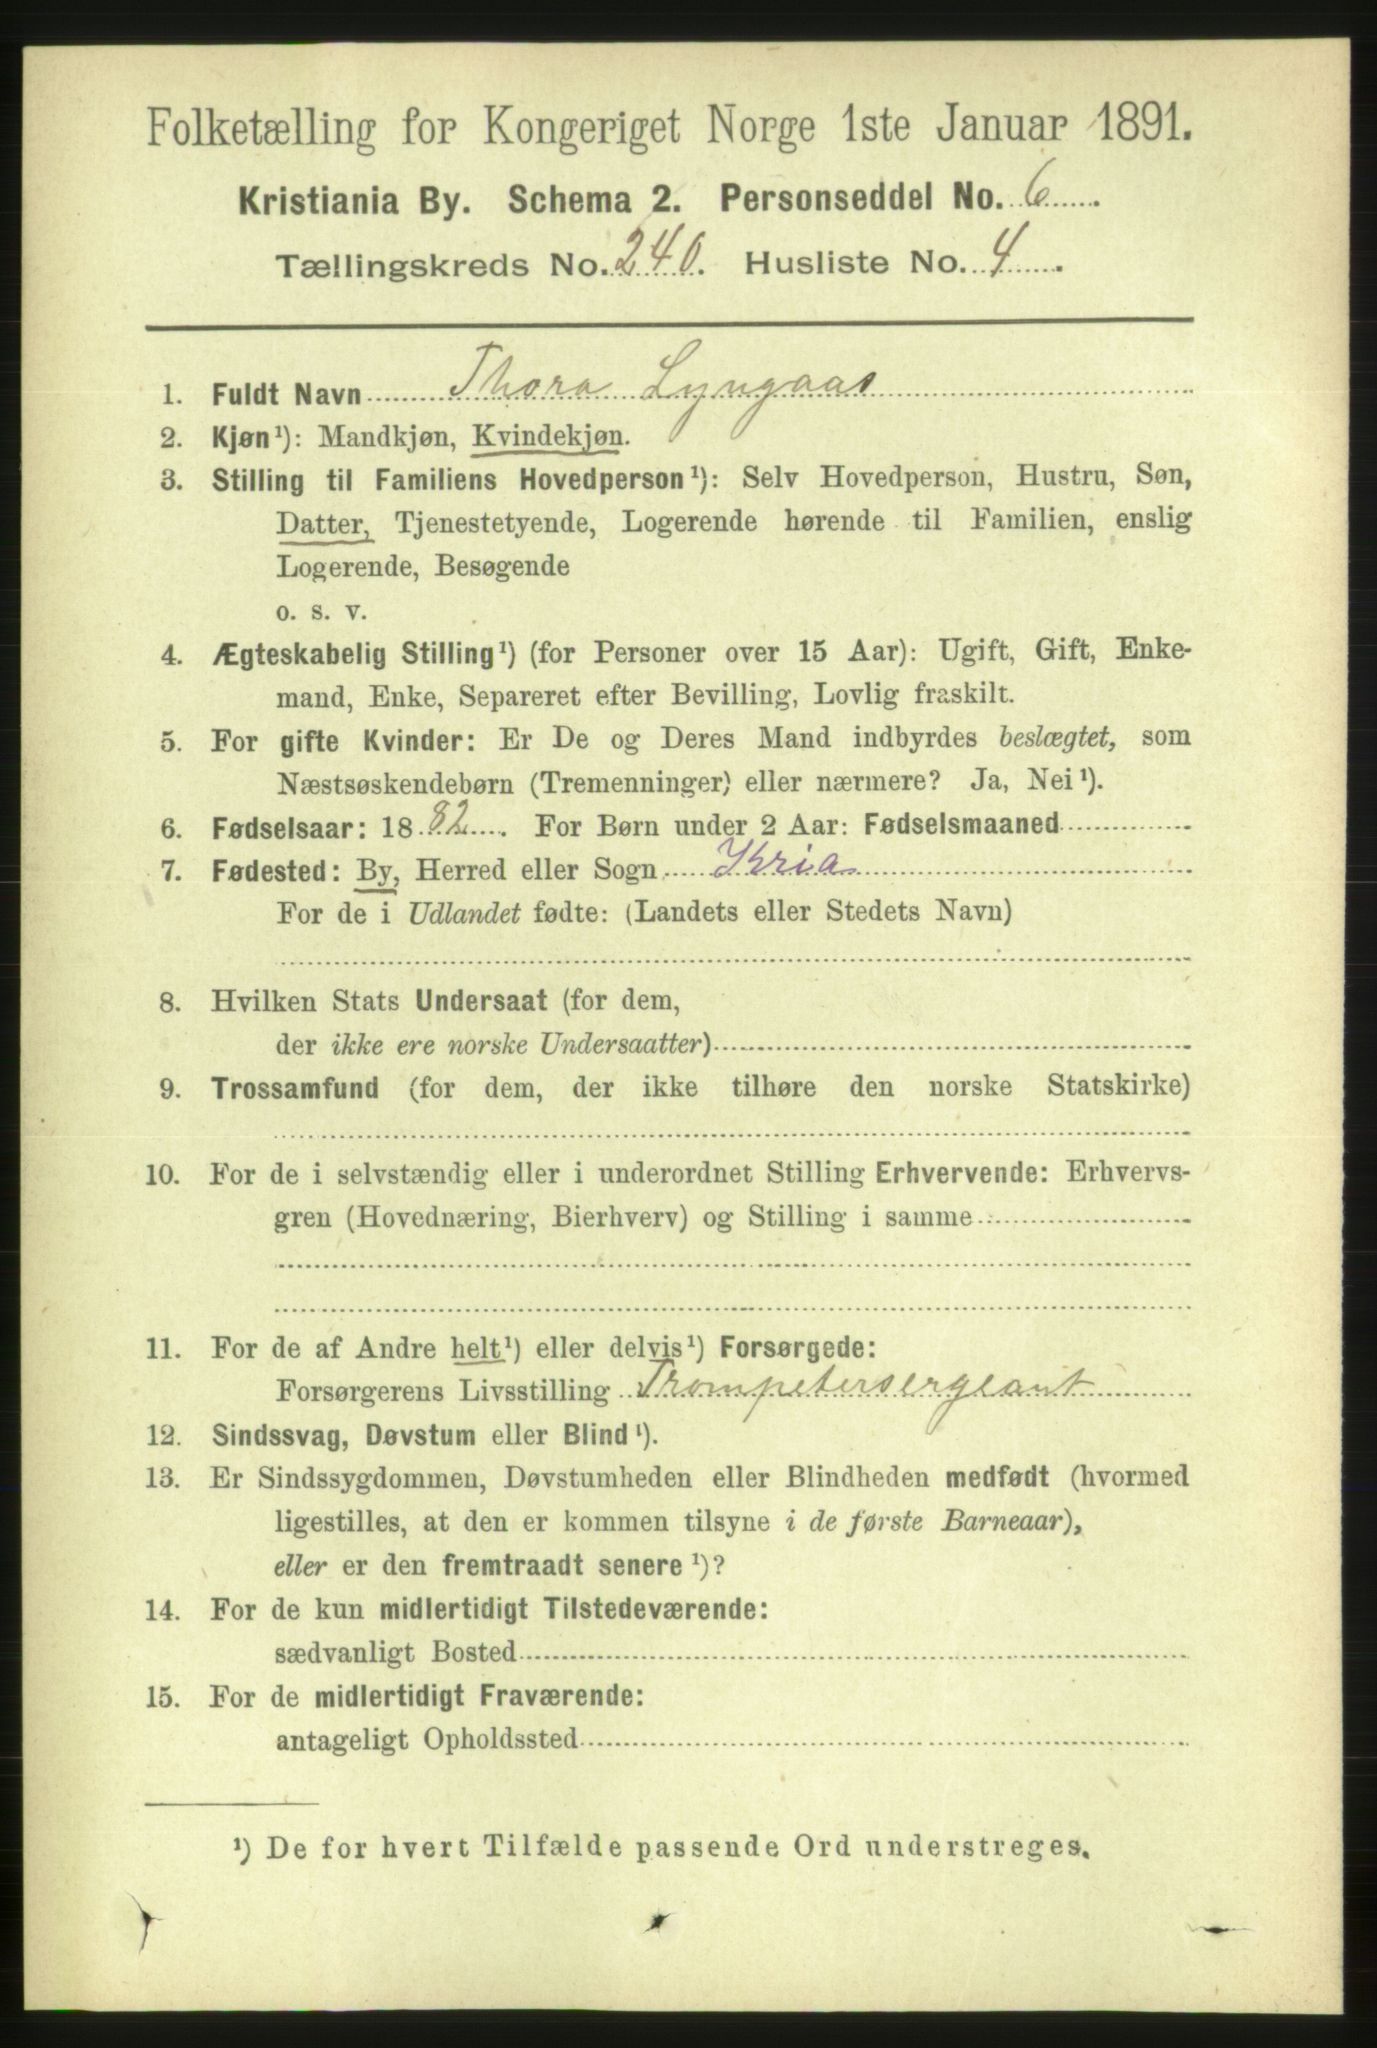 Folketælling for Kongeriget Norge 1ste Januar 1891.
Kristiania By. Schema 2. Personseddel No. 6.
Tællingskreds No. 240. Husliste No. 4.
1. Fuldt Navn Thora Lyngaas
2. Kjøn¹): Mandkjøn, Kvindekjøn.
3. Stilling til Familiens Hovedperson¹): Selv Hovedperson, Hustru, Søn,
Datter, Tjenestetyende, Logerende hørende til Familien, enslig
Logerende, Besøgende
o. s. v.
4. Ægteskabelig Stilling¹) (for Personer over 15 Aar): Ugift, Gift, Enke-
mand, Enke, Separeret efter Bevilling, Lovlig fraskilt.
5. For gifte Kvinder: Er De og Deres Mand indbyrdes beslægtet, som
Næstsøskendebørn (Tremenninger) eller nærmere? Ja, Nei¹).
6. Fødselsaar: 1882. For Børn under 2 Aar: Fødselsmaaned
7. Fødested: By, Herred eller Sogn Kria
For de i Udlandet fødte: (Landets eller Stedets Navn)
8. Hvilken Stats Undersaat (for dem,
der ikke ere norske Undersaatter)
9. Trossamfund (for dem, der ikke tilhøre den norske Statskirke)
10. For de i selvstændig eller i underordnet Stilling Erhvervende: Erhvervs-
gren (Hovednæring, Bierhverv) og Stilling i samme
11. For de af Andre helt¹) eller delvis¹) Forsørgede:
Forsørgerens Livsstilling Trompetersergeant
12. Sindssvag, Døvstum eller Blind¹).
13. Er Sindssygdommen, Døvstumheden eller Blindheden medfødt (hvormed
ligestilles, at den er kommen tilsyne i de første Barneaar),
eller er den fremtraadt senere¹)?
14. For de kun midlertidigt Tilstedeværende:
sædvanligt Bosted
15. For de midlertidigt Fraværende:
antageligt Opholdssted
¹) De for hvert Tilfælde passende Ord understreges.